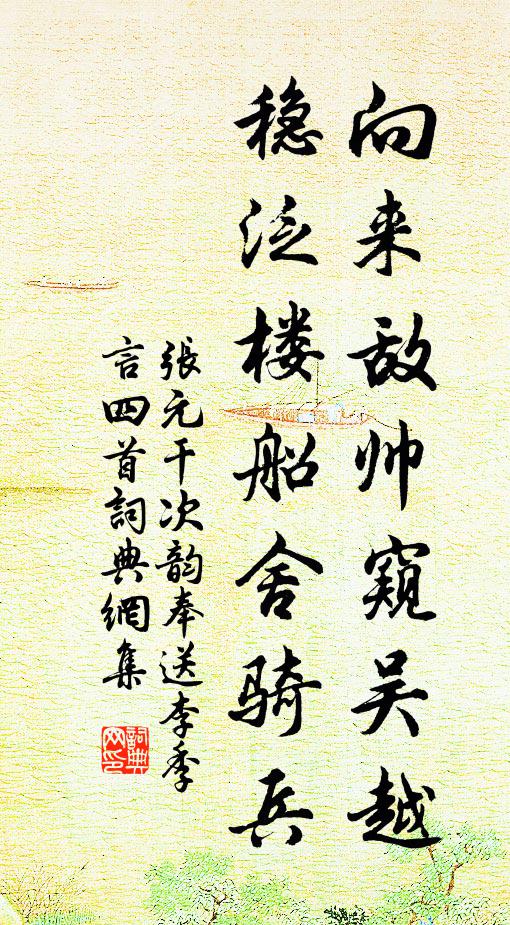 向来敌帅窥吴越
稳泛楼船舍骑兵
張元干次韵奉送李季
言四首詞典網集
詞典网印